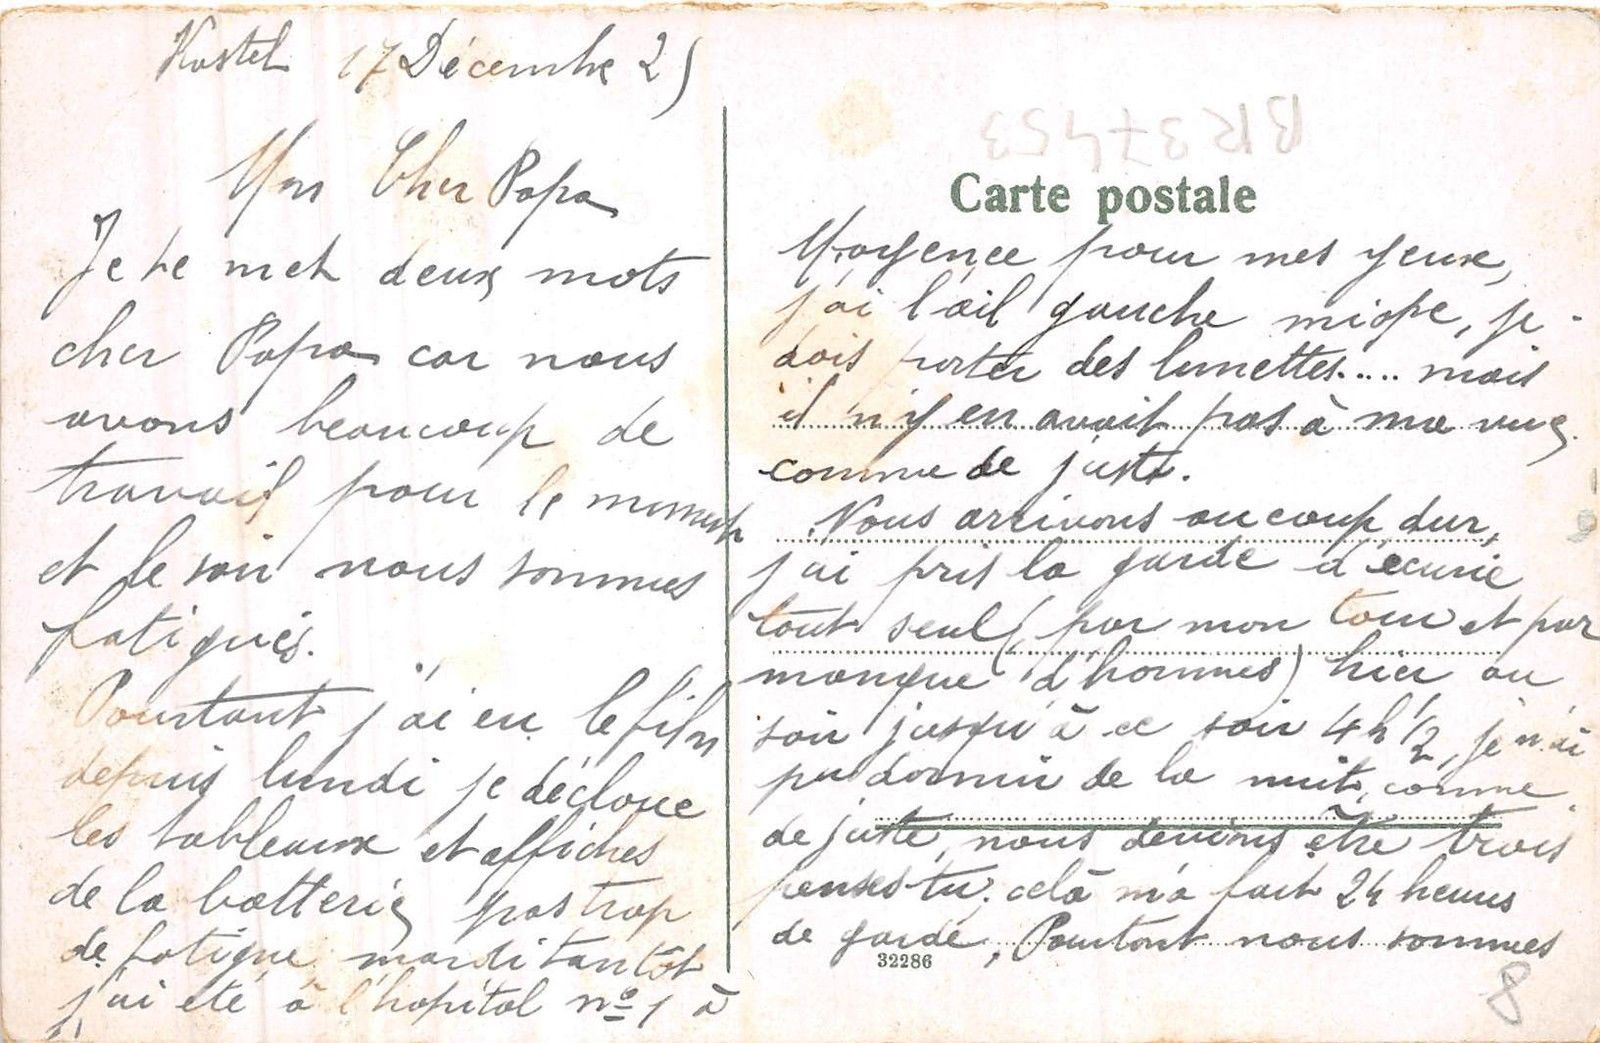 Kastel 17 Décembre 25
Mon Cher Papa
Je te met deux mots
cher Papa car nous
avons beaucoup de
travail pour le moment
et le soir nous sommes
fatigués.
Pourtant j'ai eu le filon
depuis lundi je décloue
les tableaux et affiches
de la batterie pas trop
de fatigue mardi tantôt
j'ai été à l'hopital nº 1 à
BR37453
Carte postale
Mayence pour mes yeux,
j'ai l'œil gauche miope, je
dois porter des lunettes..... mais
il n'y en avait pas à ma vue,
comme de juste.
Nous arrivons au coup dur,
j'ai pris la garde d'écurie
tout seul (par mon tour et par
manque d'hommes) hier au
soir jusqu'à ce soir 4h 1/2, je n'ai
pu dormir de la nuit, comme
de juste, nous devions être trois
penses tu, celà m'a fait 24 heures
de garde, Pourtant nous sommes
32286
8